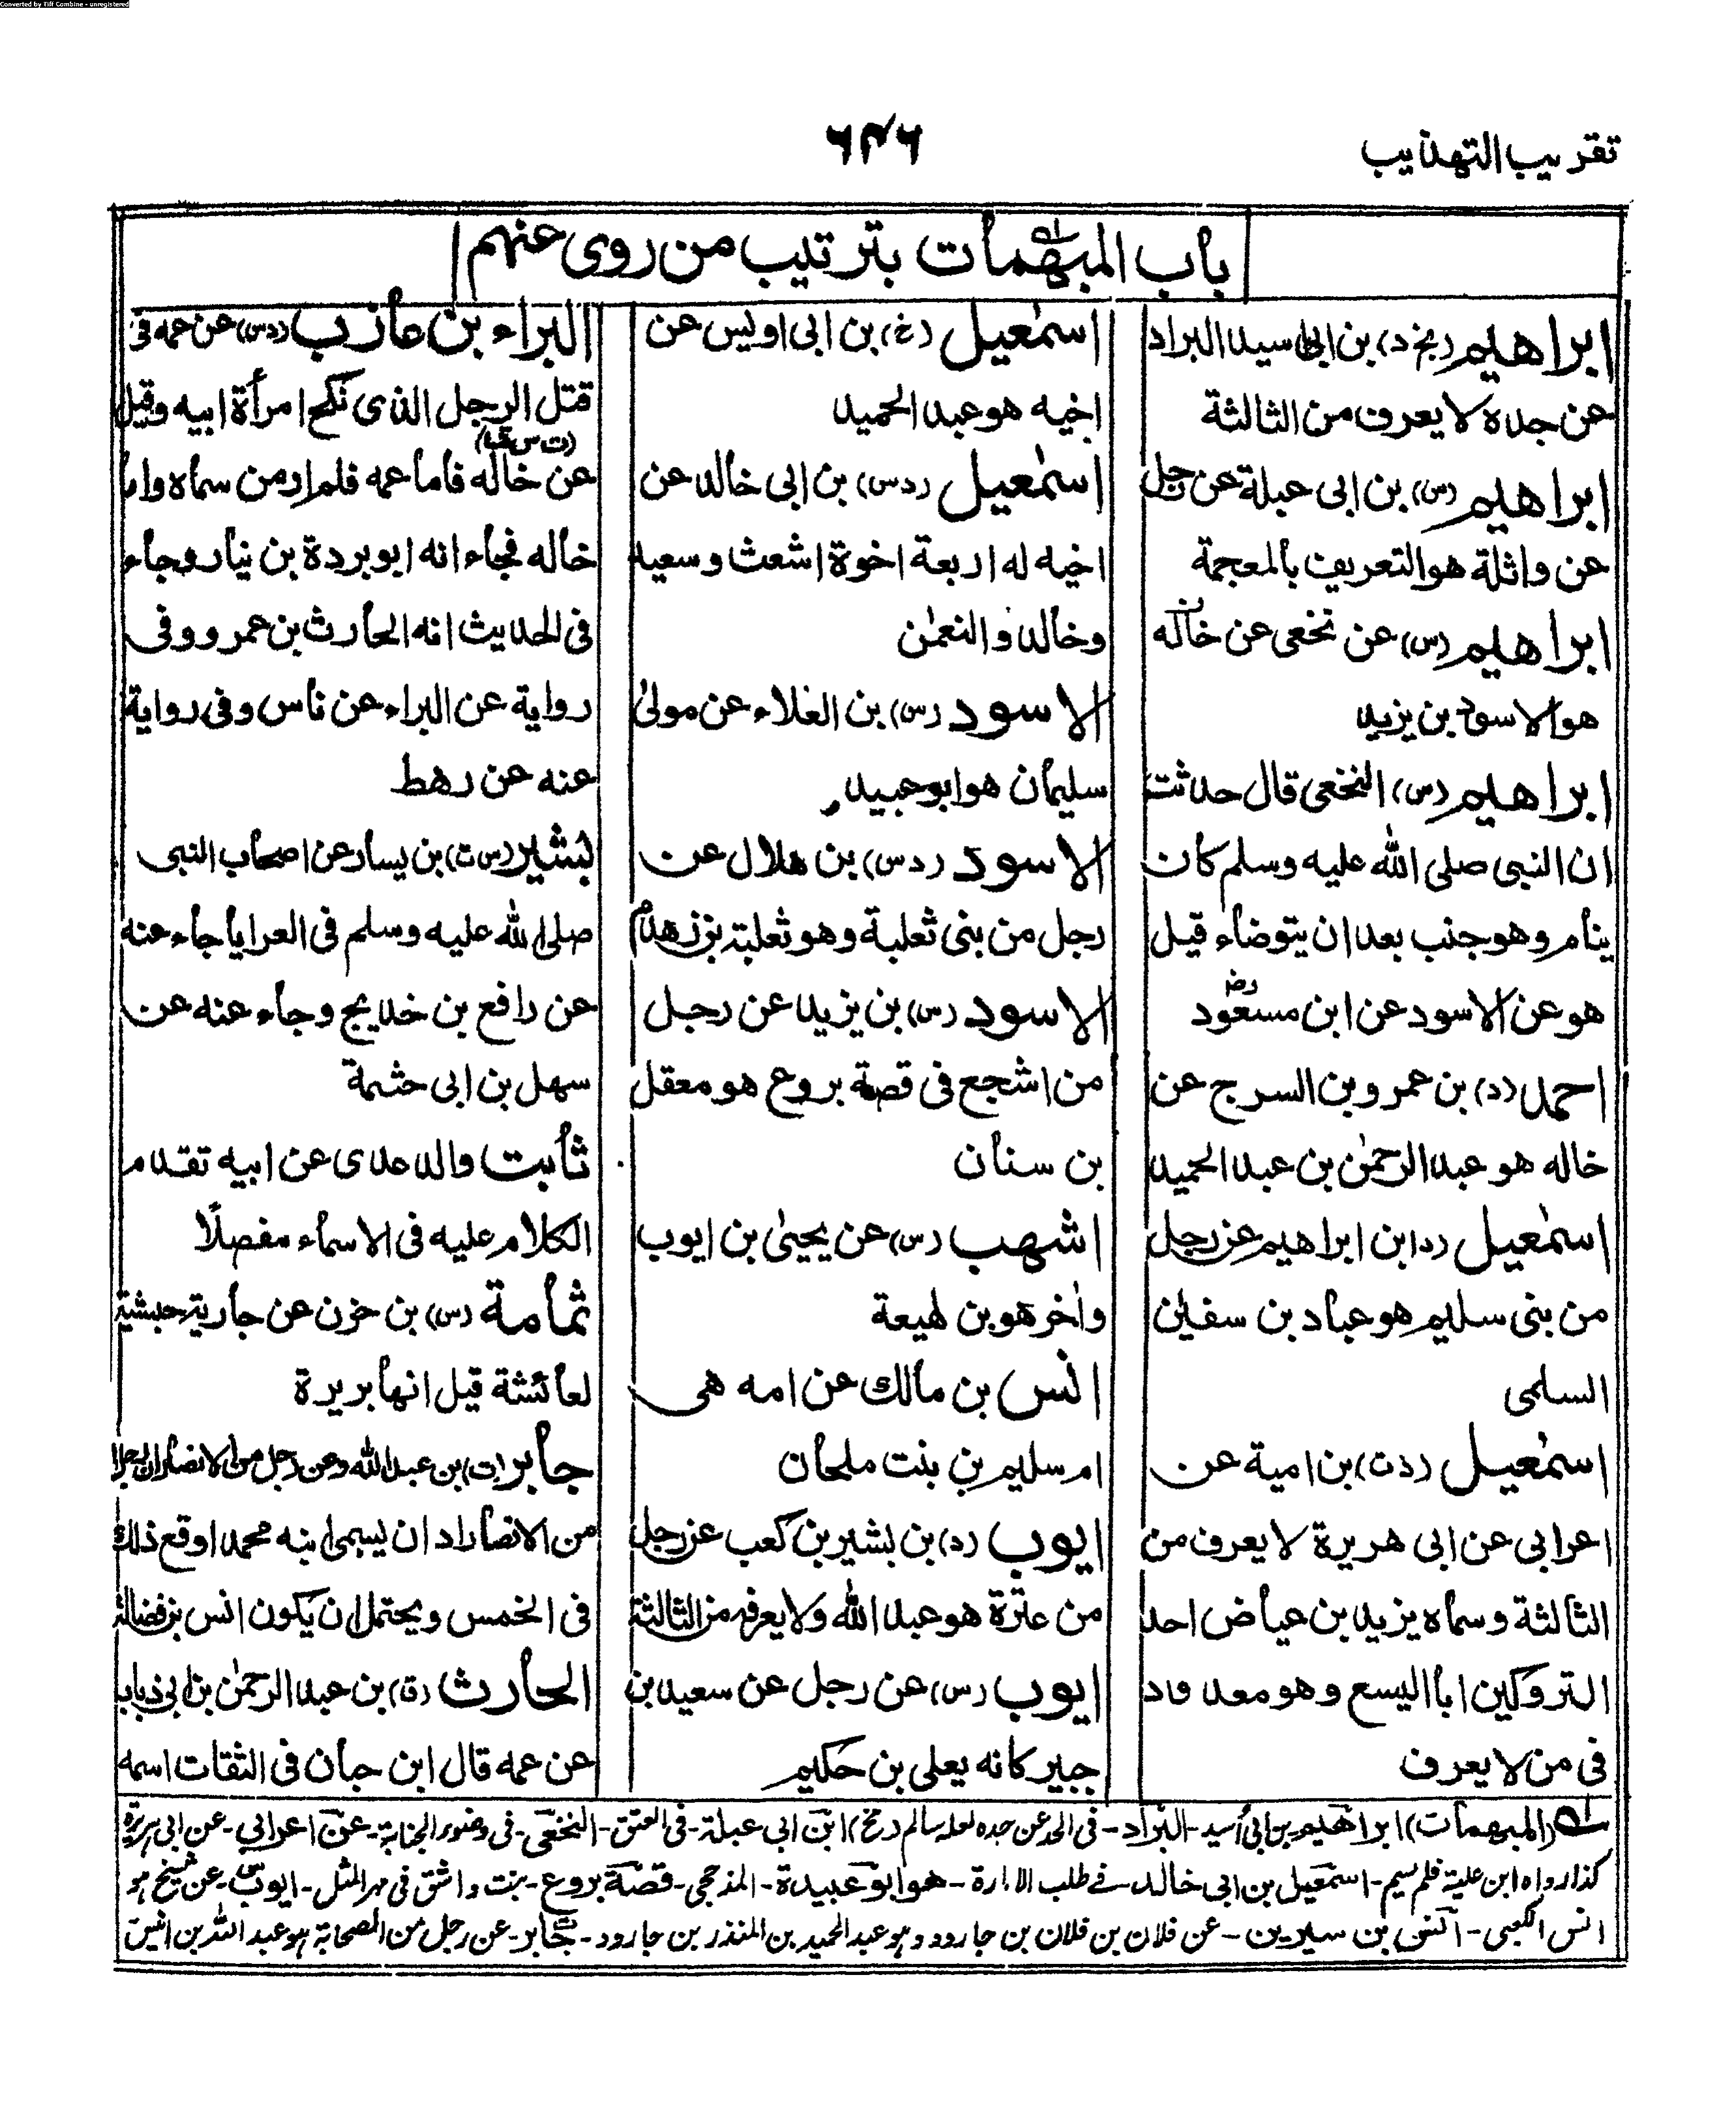 Converted by Tiff Combine - unregistered
تقريب التهذيب
٦٤٦
باب المبهمات بترتيب من روى عنهم
ابراهيم (بخ د) بن ابى اسيد البراد
عن جده لا يعرف من الثالثة
ابراهيم (س) بن ابى عبلة عن رجل
عن واثلة هو التعريف بالمعجمة
ابراهيم (س) عن نخعى عن خاله
هو الاسود بن يزيد
ابراهيم (س) النخعى قال حدثت
ان النبى صلى الله عليه وسلم كان
ينام وهو جنب بعد ان يتوضاء قيل
هو عن الاسود عن ابن مسعود رض
احمد (د) بن عمرو بن السرج عن
خاله هو عبد الرحمٰن بن عبد الحميد
اسمٰعيل (د) ابن ابراهيم عن رجل
من بنى سليم هو عباد بن سفيٰن
السلمى
اسمٰعيل (د ت) بن امية عن
اعرابى عن ابى هريرة لا يعرف من
الثالثة وسماه يزيد بن عياض احد
التروكين ابا اليسع وهو معد ود
فى من لا يعرف
اسمٰعيل (خ) بن ابى اويس عن
اخيه هو عبد الحميد
اسمٰعيل (د س) بن ابى خالد عن
اخيه له اربعة اخوة اشعث وسعيد
وخالد والنعمٰن
الاسود (س) بن العلاء عن مولىٰ
سليمان هو ابو عبيد
الاسود (د س) بن هلال عن
رجل من بنى ثعلبة وهو ثعلبة بن زهدم
الاسود (س) بن يزيد عن رجل
من اشجع فى قصة بروع هو معقل
بن سنان
اشهب (س) عن يحيىٰ بن ايوب
واٰخر هو بن لهيعة
انس بن مالك عن امه هى
ام سليم بن بنت ملحان
ايوب (د) بن بشير بن كعب عن رجل
من عنزة هو عبد الله ولا يعرف من الثالثة
ايوب (س) عن رجل عن سعيد بن
جبير كانه يعلى بن حكيم
البراء بن عازب (د س) عن عمه فى
قتل الرجل الذى نكح امرأة ابيه وقيل
عن خاله (ت س ق) فاما عمه فلم ار من سماه واما
خاله فجاء انه ابو بردة بن نيار وجاء
فى الحديث انه الحارث بن عمرو وفى
رواية عن البراء عن ناس وفى رواية
عنه عن رهط
بشير (س ت) بن يسار عن اصحاب النبى
صلى الله عليه وسلم فى العرايا جاء عنه
عن رافع بن خديج وجاء عنه عن
سهل بن ابى حثمة
ثابت والد عدى عن ابيه تقدم
الكلام عليه فى الاسماء مفصلًا
ثمامة (س) بن حزن عن جارية حبشية
لعائشة قيل انها بريرة
جابر (ت) بن عبد الله وعن رجل من الانصار ان رجلا
من الانصار اراد ان يسمى ابنه محمدا وقع ذلك
فى الخمس ويحتمل ان يكون انس بن فضالة
الحارث (ق) بن عبد الرحمٰن بن ابى ذباب
عن عمه قال ابن حبان فى الثقات اسمه
(المبهمات) ابراهيم بن ابى أسيد - البراد - فى الحد عن جده لعله سالم (د بخ) ابن ابى عبلة - فى العتق - النخعى - فى وضوء الجنابة - عن اعرابي - عن ابى هريرة
كذا رواه ابن علية فلم يسم - اسمعيل بن ابى خالد - فے طلب الامارة - هو ابو عبيدة - المذحجى - قصة بروع - بنت واشق فى مهر المثل - ايوب - عن شيخ هو
انس الكعبى - انس بن سيرين - عن فلان بن فلان بن جارود وهو عبد الحميد بن المنذر بن جارود - جابر - عن رجل من الصحابة هو عبد الله بن انيس